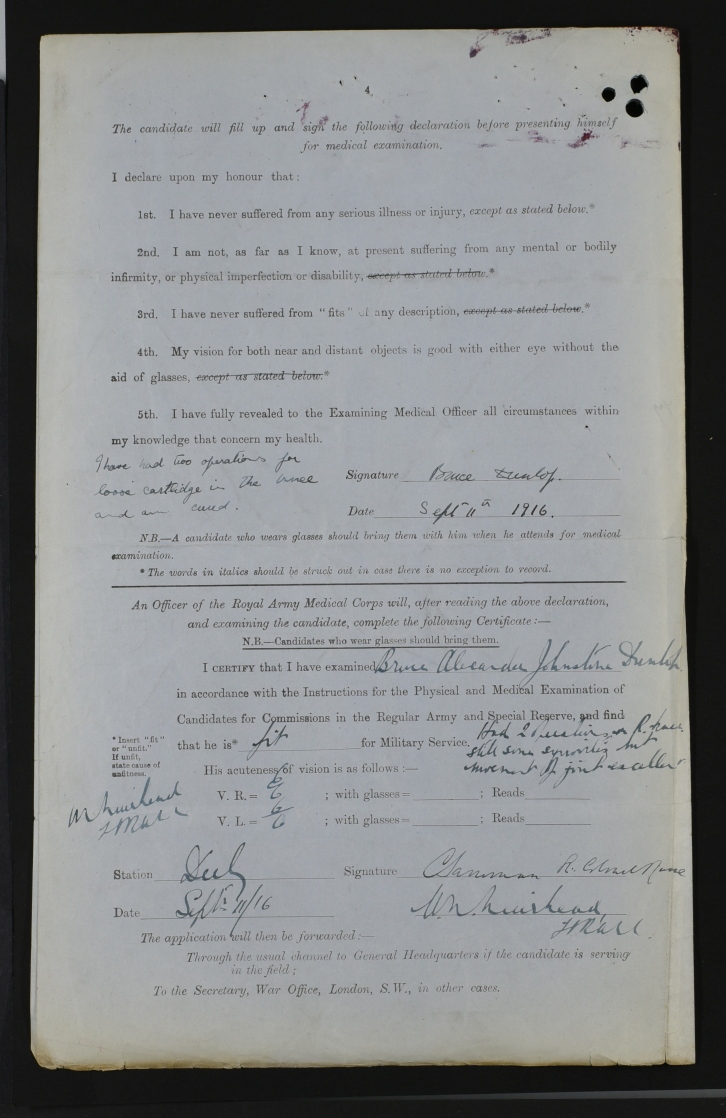 4
The candidate will fill up and sign the following declaration before presenting himself
for medical examination.
I declare upon my honour that:
1st. I have never suffered from any serious illness or injury, except as stated below.*
2nd. I am not, as far as I know, at present suffering from any mental or bodily
infirmity, or physical imperfection or disability, except as stated below.*
3rd. I have never suffered from "fits" of any description, except as stated below.*
4th. My vision for both near and distant objects is good with either eye without the
aid of glasses, except as stated below.*
5th. I have fully revealed to the Examining Medical Officer all circumstances within
my knowledge that concern my health.
I have had two operations for
loose cartlidge in the knee
and am cured.
Signature Bruce Dunlop.
Date Sept 11th 1916.
N.B.—A candidate who wears glasses should bring them with him when he attends for medical
examination.
* The words in italics should be struck out in case there is no exception to record.
An Officer of the Royal Army Medical Corps will, after reading the above declaration,
and examining the candidate, complete the following Certificate:—
N.B.—Candidates who wear glasses should bring them.
I CERTIFY that I have examined Bruce Alexander Johnstone Dunlop
in accordance with the Instructions for the Physical and Medical Examination of
Candidates for Commissions in the Regular Army and Special Reserve, and find
that he is* fit for Military Service. Had 2 operations on R. knee
still some synovitis but
movement of joint excellent
* Insert "fit"
or "unfit."
If unfit,
state cause of
unfitness.
His acuteness of vision is as follows:—
V. R. = 6/6 ; with glasses = ; Reads
V. L. = 6/6 ; with glasses = ; Reads
W Muirhead
Station Signature
Date Sept 11/16 W. Muirhead
The application will then be forwarded:—
Through the usual channel to General Headquarters if the candidate is serving
in the field;
To the Secretary, War Office, London, S.W., in other cases.